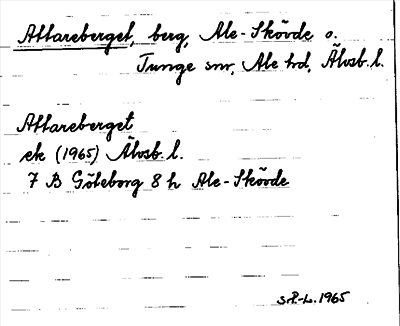 Attareberget, berg, Ale-Skövde o.
Tunge snr, Ale hd, Älvsb. l.
Attareberget
ek (1965) Älvsb. l.
7 B Göteborg 8 h Ale-Skövde
1965